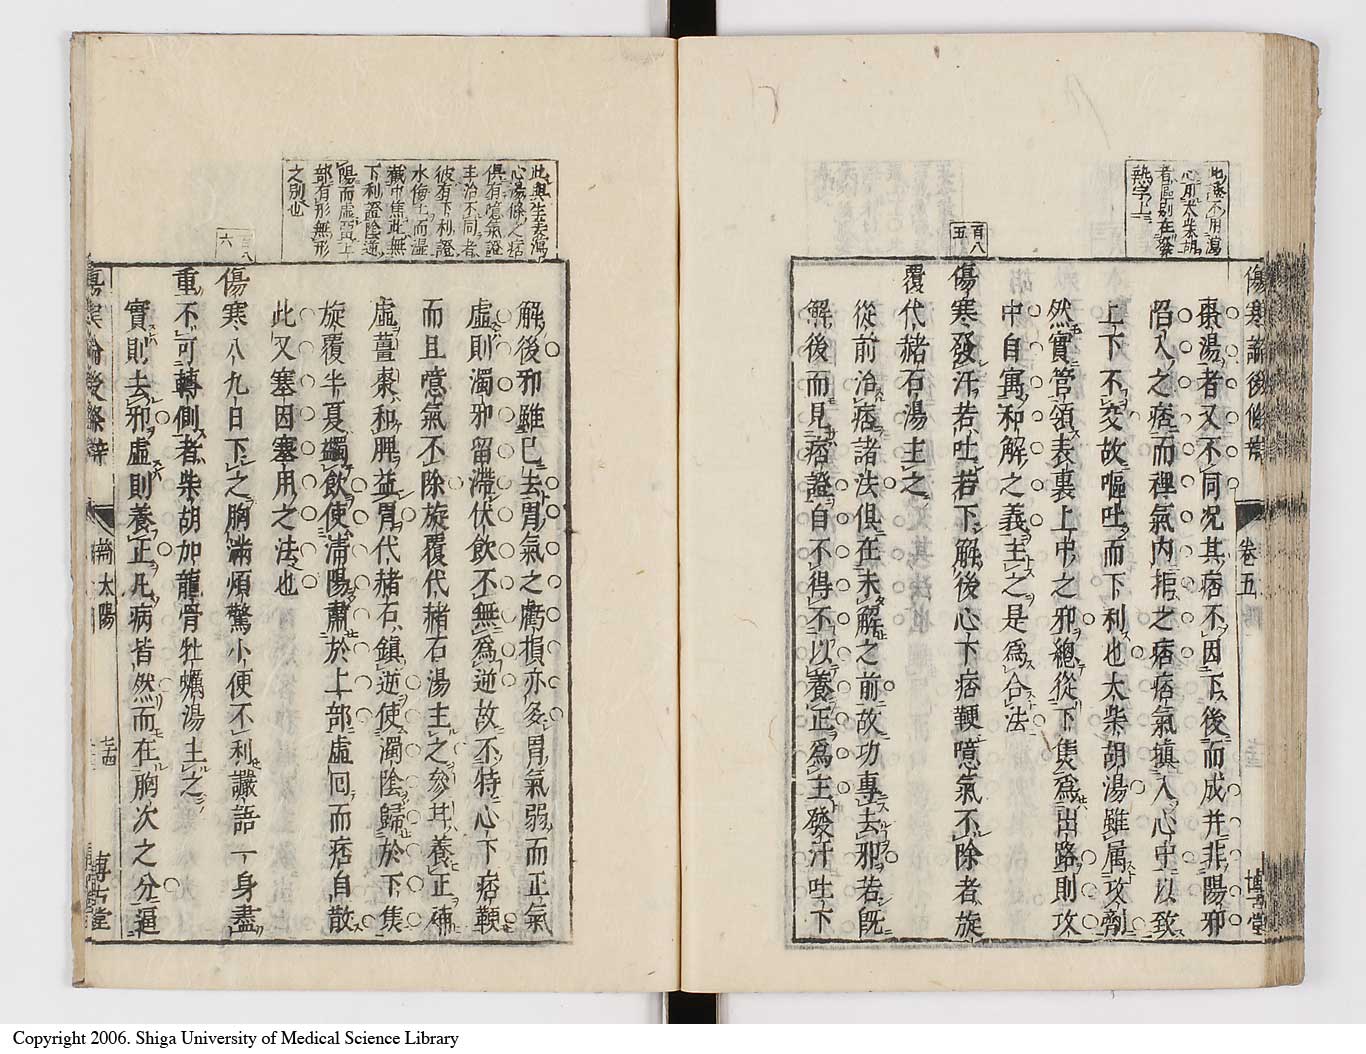 傷寒論後條辨
卷五
博古堂
此處不用瀉
心用大柴胡
者區別在發
熱字上
棗湯者又不同況其痞不因下後而成并非陽邪
陷入之痞而裡氣內拒之痞痞氣填入心中以致
上下不交故嘔吐而下利也大柴胡湯雖属攻劑
然實管領表裏上中之邪總從下焦為出路則攻
中自寓和解之義主之是為合法
百八
五
傷寒發汗若吐若下解後心下痞鞕噫氣不除者旋
覆代赭石湯主之
從前治痞諸法俱在未解之前故功專去邪若既
解後而見痞證自不得不以養正為主發汗吐下
此與生姜瀉
心湯條之痞
俱有噫氣證
主治不同者
彼有下利證
水傷土而濕
蔵中焦此無
下利證陰逆
陽而虛留上
部有形無形
之別也
解後邪雖已去胃氣之虧損亦多胃氣弱而正氣
虛則濁邪留滯伏飲不無為逆故不特心下痞鞕
而且噫氣不除旋覆代赭石湯主之參甘養正補
虛薑棗和脾益胃代赭石鎮逆使濁陰歸於下焦
旋覆半夏蠲飲使清陽肅於上部虛回而痞自散
此又塞因塞用之法也
百八
六
傷寒八九日下之胸滿煩驚小便不利讝語一身盡
重不可轉側者柴胡加龍骨牡蠣湯主之
實則去邪虛則養正凡病皆然而在胸次之分逼
傷寒論後條辨
太陽
博古堂
Copyright 2006. Shiga University of Medical Science Library